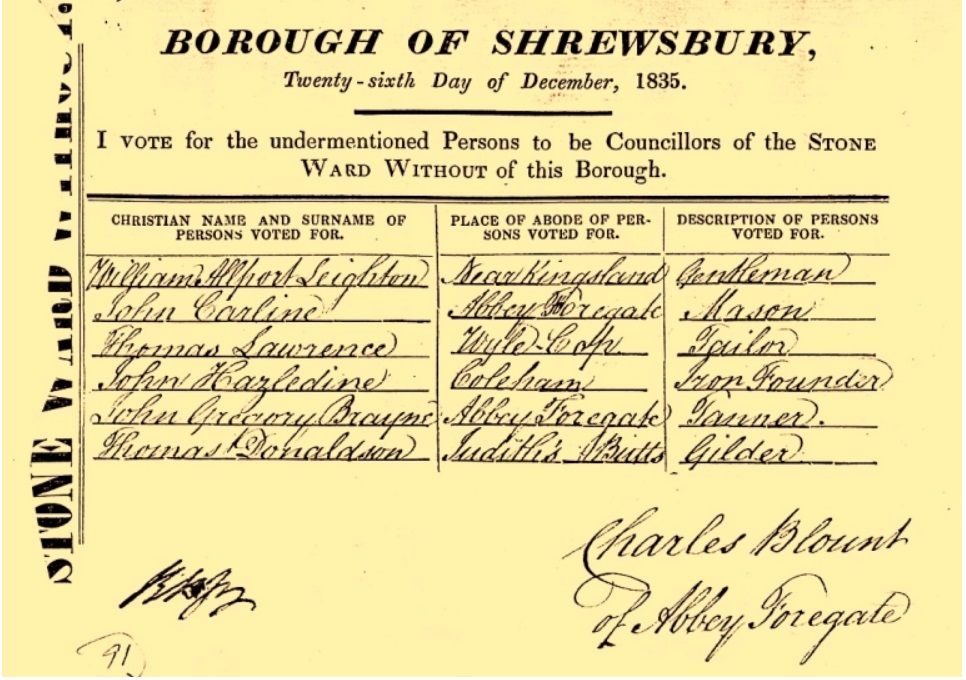 BOROUGH OF SHREWSBURY,
Twenty-sixth Day of December, 1835.
I VOTE for the undermentioned Persons to be Councillors of the STONE
WARD WITHOUT of this Borough.
CHRISTIAN NAME AND SURNAME OF PERSONS VOTED FOR. PLACE OF ABODE OF PERSONS VOTED FOR. DESCRIPTION OF PERSONS VOTED FOR.
William Allport Leighton Near Kingsland Gentleman
John Carline Abbey Foregate Mason
Thomas Lawrence Wyle-Cop. Tailor
John Hazledine Coleham Iron Founder
John Gregory Brayne Abbey Foregate Tanner.
Thomas Donaldson Judith's Butts Gilder
Charles Blount
of Abbey Foregate
91
STONE WARD